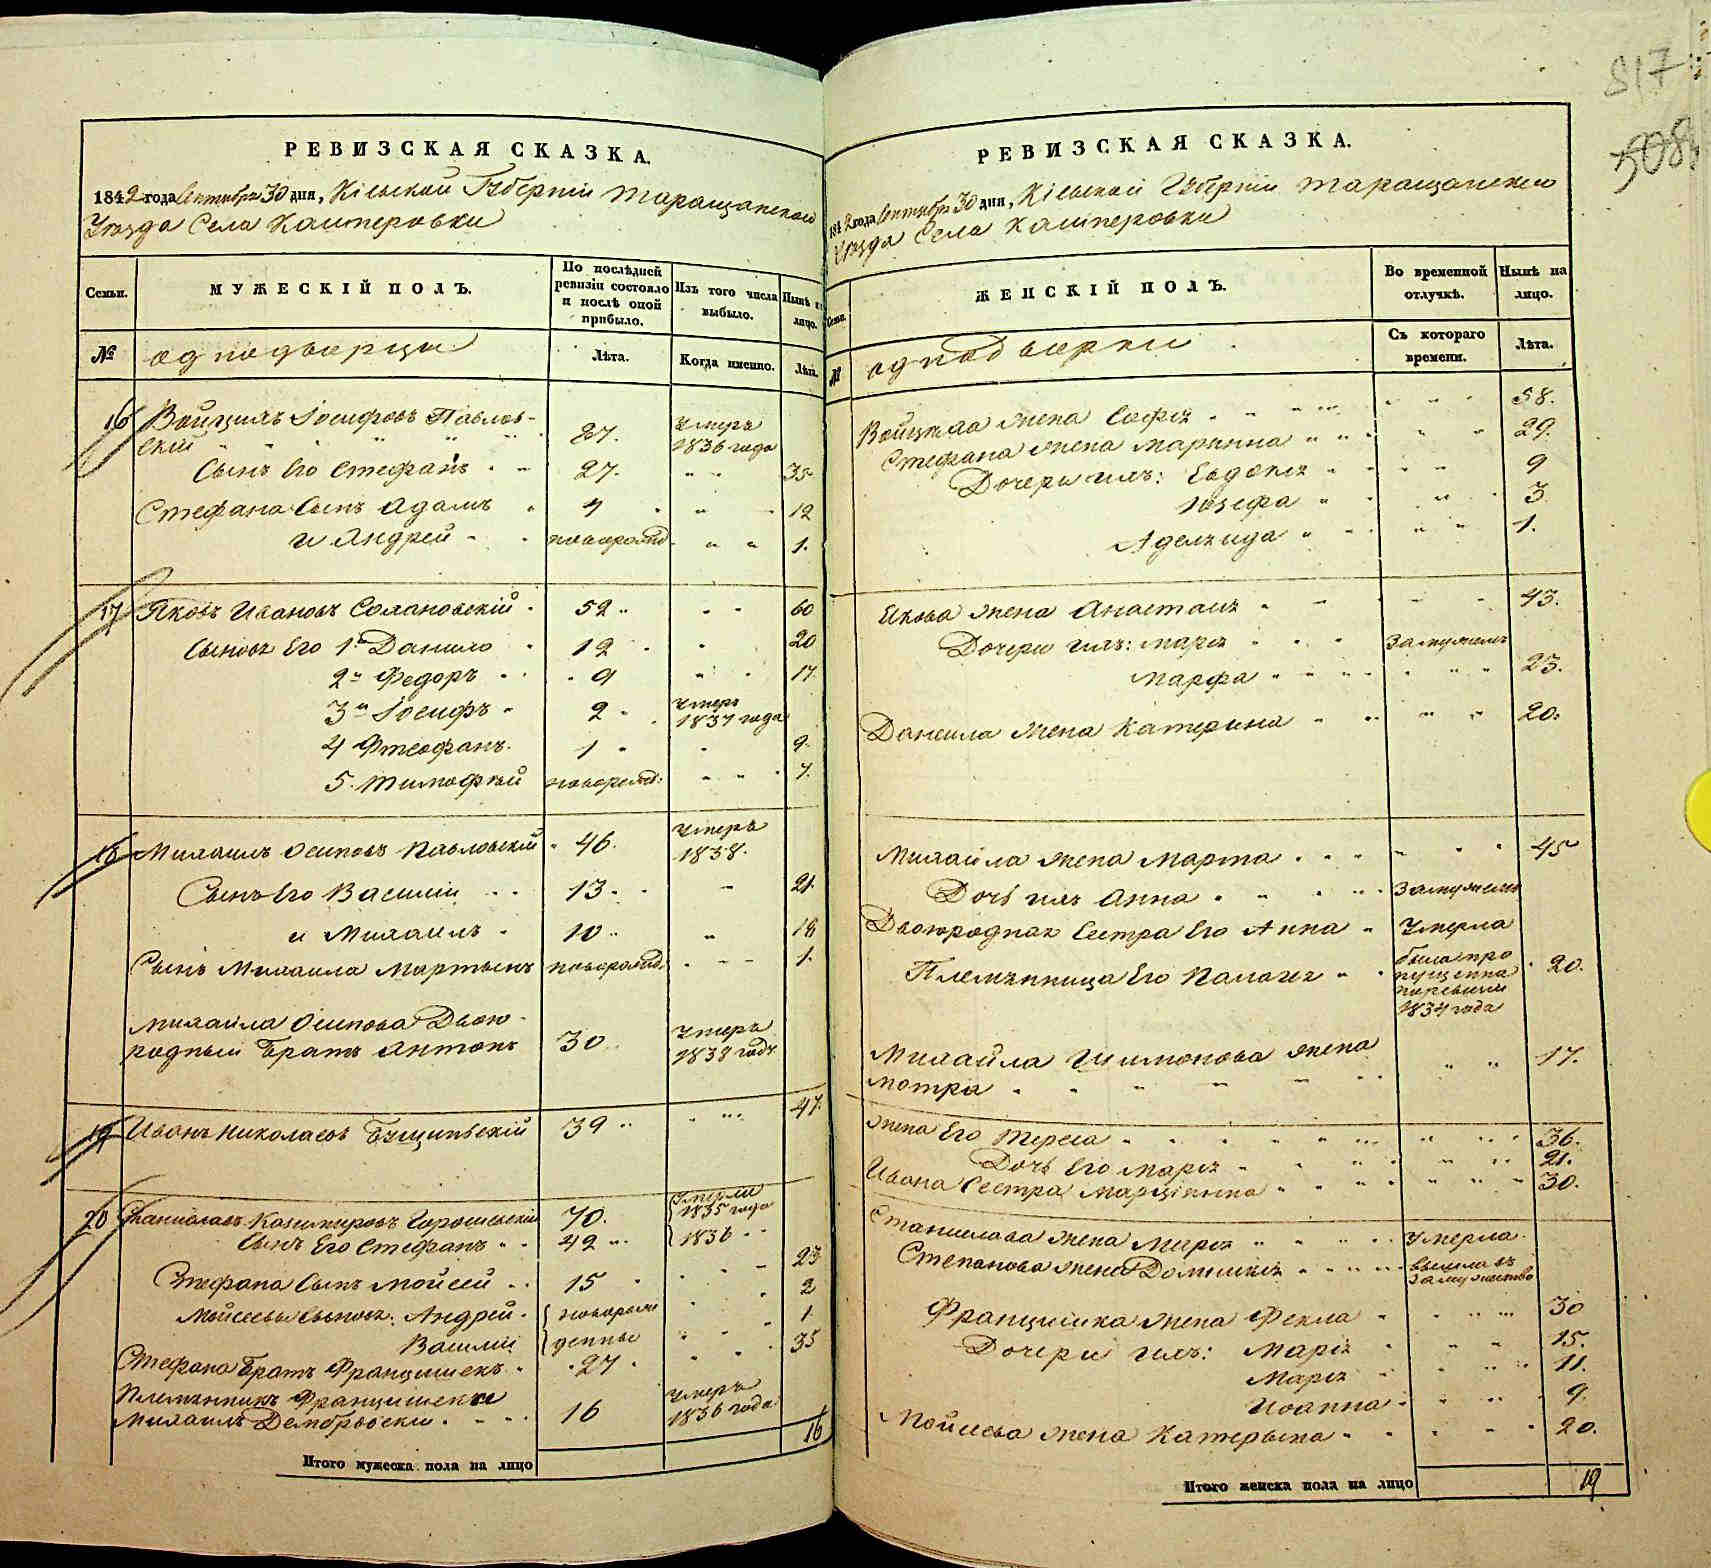 РЕВИЗСКАЯ СКАЗКА.
1842 года Сентября 30 дня, Кіевской Губерніи Таращанскаго
Уезда Села Каштеровки
Семьи.
МУЖЕСКІЙ ПОЛЪ.
По послѣдней ревизіи состояло и послѣ оной прибыло.
Изъ того числа выбыло.
Нынѣ на лицо.
№
однодворцы
Лѣта.
Когда именно.
Лѣта.
16 Войцихъ Іосифовъ Павлов-
скій 27. Умеръ 1836 года
Сынъ Его Стефанъ 27. 35
Стефана Сынъ Адамъ 4 12
и Андрей новорожд 1.
17 Яковъ Ивановъ Солановскій 52 60
Сыновья Его 1й Данило 12 20
2й Федоръ 9 17.
3й Іосифъ 2 Умеръ 1837 года
4 Фтеофанъ 1 9.
5. Тимофѣй новорожд: 7.
18 Михаилъ Осиповъ Павловскій 46. Умеръ 1838.
Сынъ Его Василій 13. 21.
и Михаилъ 10 18
Сынъ Михаила Мартынъ новорожд. 1.
Михаила Осипова Двою-
родный Братъ Антонъ 30 Умеръ 1838 года
19 Иванъ Николаевъ Бущинскій 39 47.
20 Станиславъ Казимировъ Горошевскій 70. Умерли 1835 года
Сынъ Его Стефанъ 42 1836
Стефана Сынъ Мойсей 15 23
Мойсеевы Сыновья: Андрей новорож 2
Василій денные 1
Стефана Братъ Францишекъ 27 35
Племянникъ Францишека
Михаилъ Дембровскій 16 Умеръ 1836 года
Итого мужеска пола на лицо 16
817
508
РЕВИЗСКАЯ СКАЗКА.
1842 года Сентября 30 дня, Кіевской Губерніи Таращанскаго
Уезда Села Каштеровки
Семьи.
ЖЕНСКІЙ ПОЛЪ.
Во временной отлучкѣ.
Нынѣ на лицо.
№
однодворки
Съ котораго времени.
Лѣта.
Войцеха жена Софія 58.
Стефана жена Марянна 29.
Дочери ихъ: Евдокія 9
Іозефа 3
Аделяида 1.
Якова жена Анастасія 43.
Дочери ихъ: Марія Замужемъ
Марфа 23.
Данеила жена Катерина 20.
Михайла жена Марта 45
Дочь ихъ Анна Замужемъ
Двоюродная Сестра Его Анна Умерла
Племянница Его Палагія была пропущенна по ревизіи 1834 года 20.
Михайла Шимонова жена
Мотря 17.
Жена Его Тереса 36.
Дочь Его Марія 21.
Ивана Сестра Марціянна 30.
Станислава жена Марія Умерла
Степанова жена Доминикія вышла въ замужество
Францишка жена Фекла 30
Дочери ихъ: Марія 15.
Марія 11.
Иоанна 9.
Мойсева жена Катерына 20.
Итого женска пола на лицо 19